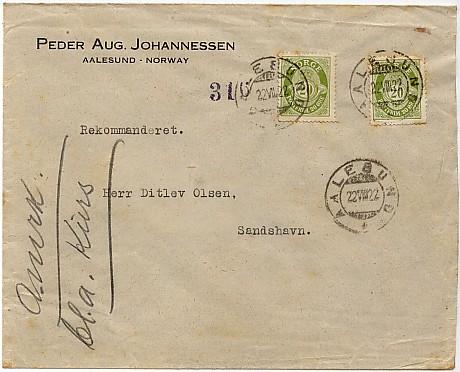 PEDER AUG. JOHANNESSEN
AALESUND - NORWAY
316
NORGE
AALESUND
22 VIII 22
20
AALESUND
22 VIII 22
Rekommanderet.
Herr Ditlev Olsen,
Sandshavn.
AALESUND
22 VIII 22
bl.a. Kurs